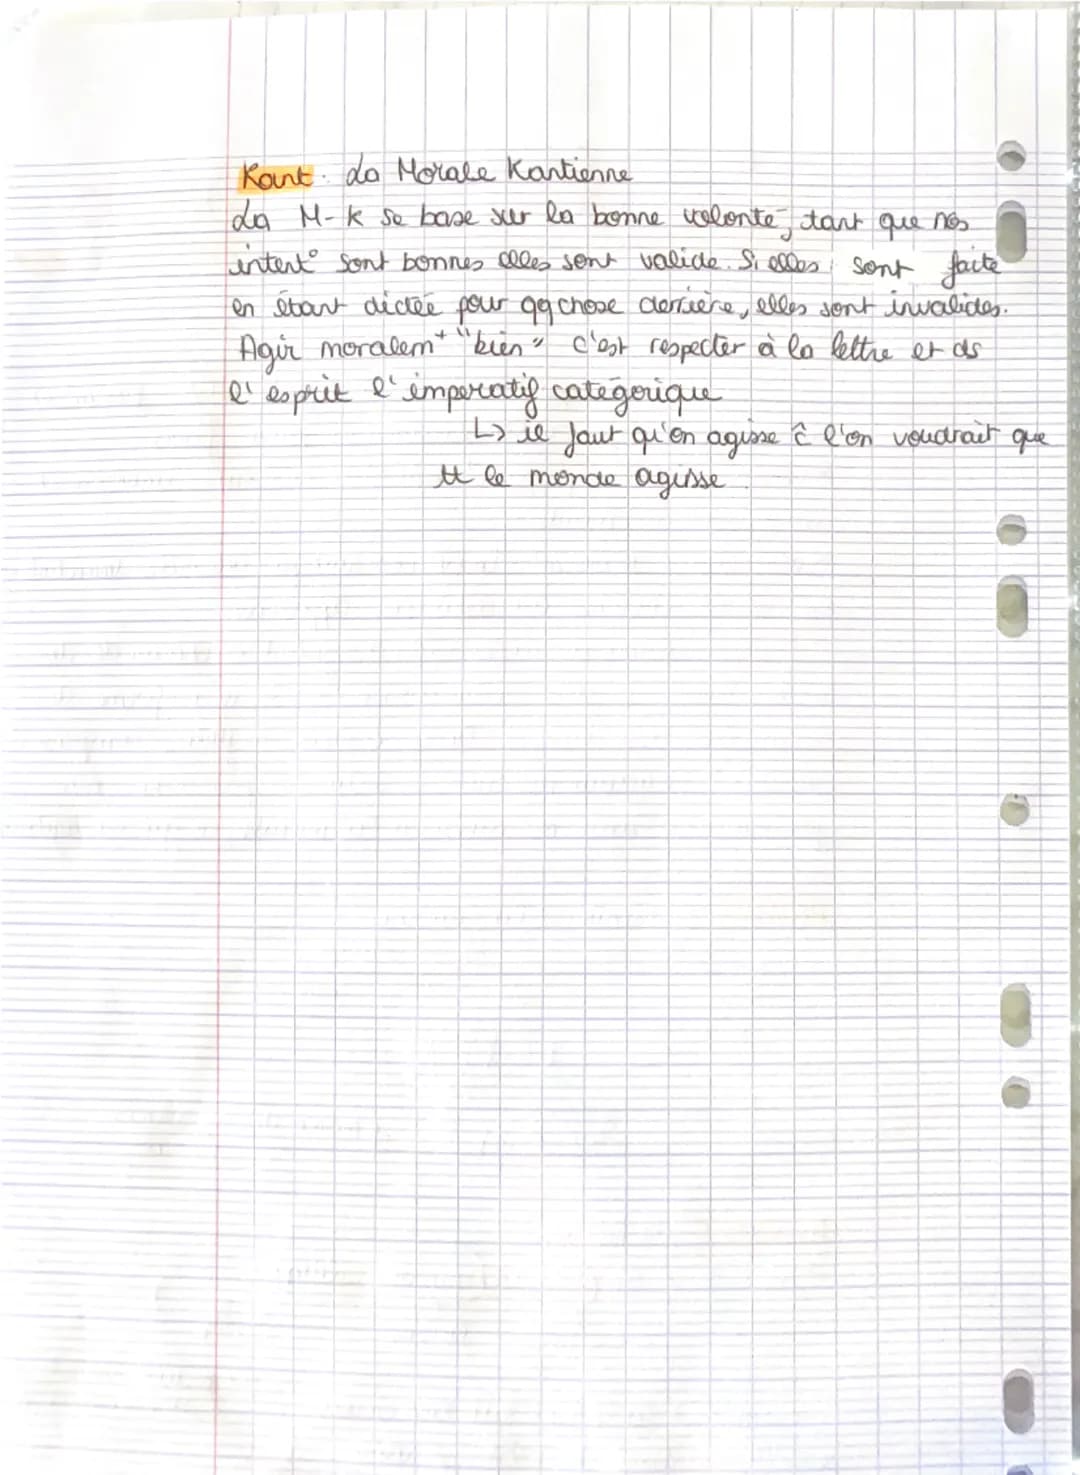 Kant : La Morale Kantienne
La M-K se base sur la bonne volonté, tant que nos
intent° sont bonnes elles sont valide. Si elles sont faite
en étant dictée pour qqchose derrière, elles sont invalides.
Agir moralem^t "bien" c'est respecter à la lettre et ds
l'esprit l'impératif catégorique
↳ il faut qu'on agisse ĉ l'on voudrait que
tt le monde agisse